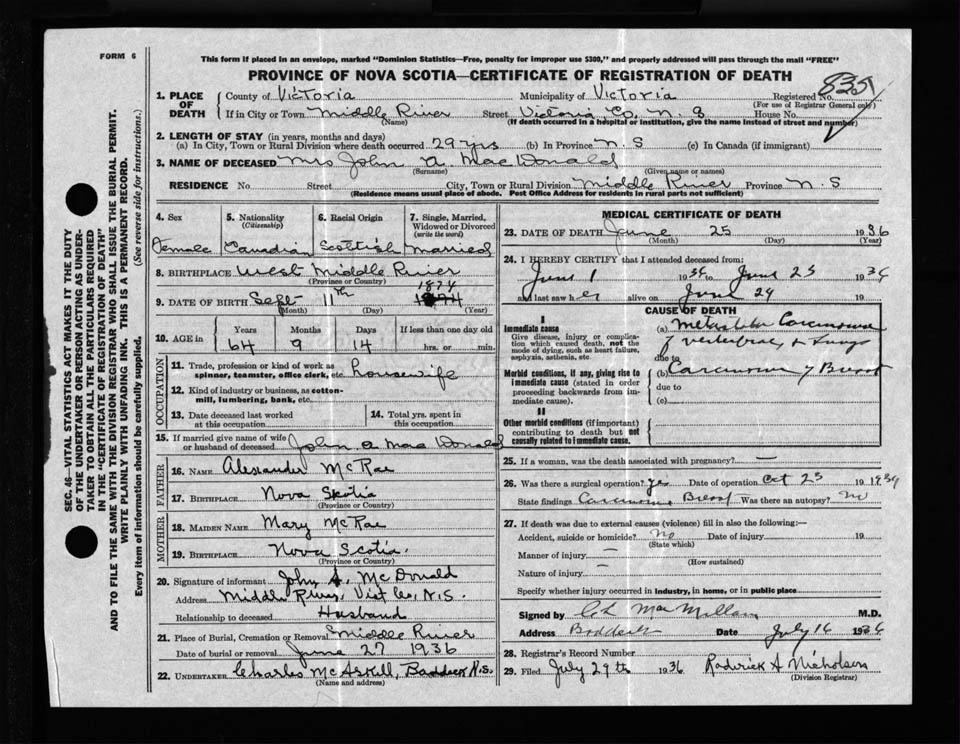 FORM 6
This form if placed in an envelope, marked "Dominion Statistics—Free, penalty for improper use $300," and properly addressed will pass through the mail "FREE"
PROVINCE OF NOVA SCOTIA—CERTIFICATE OF REGISTRATION OF DEATH
835
1. PLACE OF DEATH
County of Victoria Municipality of Victoria Registered No.
(For use of Registrar General only)
If in City or Town Middle River Street Victoria Co, N. S House No.
(Name) (If death occurred in a hospital or institution, give the name instead of street and number)
2. LENGTH OF STAY (in years, months and days)
(a) In City, Town or Rural Division where death occurred 29 yrs (b) In Province N. S (c) In Canada (if immigrant)
3. NAME OF DECEASED Mrs John A. MacDonald
(Surname) (Given name or names)
RESIDENCE No. Street City, Town or Rural Division Middle River Province N. S
(Residence means usual place of abode. Post Office Address for residents in rural parts not sufficient)
4. Sex 5. Nationality (Citizenship) 6. Racial Origin 7. Single, Married, Widowed or Divorced (write the word)
Female Canadian Scottish Married
8. BIRTHPLACE West Middle River
(Province or Country)
1874
9. DATE OF BIRTH Sept 11th
(Month) (Day) (Year)
10. AGE in Years Months Days If less than one day old
64 9 14 hrs. or min.
OCCUPATION
11. Trade, profession or kind of work as spinner, teamster, office clerk, etc. Housewife
12. Kind of industry or business, as cotton-mill, lumbering, bank, etc.
13. Date deceased last worked at this occupation
14. Total yrs. spent in this occupation
15. If married give name of wife or husband of deceased John A. MacDonald
FATHER
16. NAME Alexander McRae
17. BIRTHPLACE Nova Scotia
(Province or Country)
MOTHER
18. MAIDEN NAME Mary McRae
19. BIRTHPLACE Nova Scotia.
(Province or Country)
20. Signature of informant John A. McDonald
Address Middle River, Vict Co, N.S.
Relationship to deceased Husband
21. Place of Burial, Cremation or Removal Middle River
Date of burial or removal June 27 1936
22. UNDERTAKER Charles McAskill, Baddeck N.S.
(Name and address)
MEDICAL CERTIFICATE OF DEATH
23. DATE OF DEATH June 25 1936
(Month) (Day) (Year)
24. I HEREBY CERTIFY that I attended deceased from:
June 1 1936 to June 25 1936
and last saw her alive on June 24 19
CAUSE OF DEATH
I
Immediate cause
Give disease, injury or complication which caused death, not the mode of dying, such as heart failure, asphyxia, asthenia, etc.
(a) Carcinoma
of vertebrae, & lungs
due to
Morbid conditions, if any, giving rise to immediate cause (stated in order proceeding backwards from immediate cause).
(b) Carcinoma of Breast
due to
(c)
II
Other morbid conditions (if important) contributing to death but not causally related to immediate cause.
25. If a woman, was the death associated with pregnancy? —
26. Was there a surgical operation? Yes Date of operation Oct 23 1934
State findings Carcinoma Breast Was there an autopsy? No
27. If death was due to external causes (violence) fill in also the following:—
Accident, suicide or homicide? No Date of injury 19
(State which)
Manner of injury —
(How sustained)
Nature of injury —
Specify whether injury occurred in industry, in home, or in public place
Signed by MacMillan M.D.
Address Baddeck Date July 16 1936
28. Registrar's Record Number
29. Filed July 29th 1936 Roderick A Nicholson
(Division Registrar)
SEC. 46—VITAL STATISTICS ACT MAKES IT THE DUTY
OF THE UNDERTAKER OR PERSON ACTING AS UNDER-
TAKER TO OBTAIN ALL THE PARTICULARS REQUIRED
IN THE "CERTIFICATE OF REGISTRATION OF DEATH"
AND TO FILE THE SAME WITH THE DIVISION REGISTRAR WHO SHALL ISSUE THE BURIAL PERMIT.
WRITE PLAINLY WITH UNFADING INK. THIS IS A PERMANENT RECORD.
Every item of information should be carefully supplied. (See reverse side for instructions.)